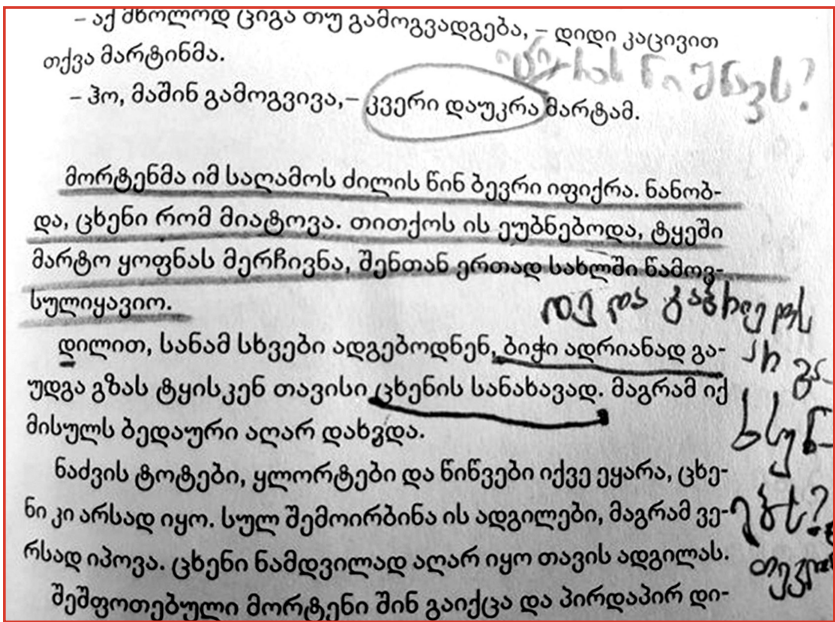 – აქ მხოლოდ ციგა თუ გამოგვადგება, – დიდი კაცივით
თქვა მარტინმა.
– ჰო, მაშინ გამოგვივა,– კვერი დაუკრა მარტამ.
მორტენმა იმ საღამოს ძილის წინ ბევრი იფიქრა. ნანობ-
და, ცხენი რომ მიატოვა. თითქოს ის ეუბნებოდა, ტყეში
მარტო ყოფნას მერჩივნა, შენთან ერთად სახლში წამოვ-
სულიყავიო.
დილით, სანამ სხვები ადგებოდნენ, ბიჭი ადრიანად გა-
უდგა გზას ტყისკენ თავისი ცხენის სანახავად. მაგრამ იქ
მისულს ბედაური აღარ დახვდა.
ნაძვის ტოტები, ყლორტები და წიწვები იქვე ეყარა, ცხე-
ნი კი არსად იყო. სულ შემოირბინა ის ადგილები, მაგრამ ვე-
რსად იპოვა. ცხენი ნამდვილად აღარ იყო თავის ადგილას.
შეშფოთებული მორტენი შინ გაიქცა და პირდაპირ დი-